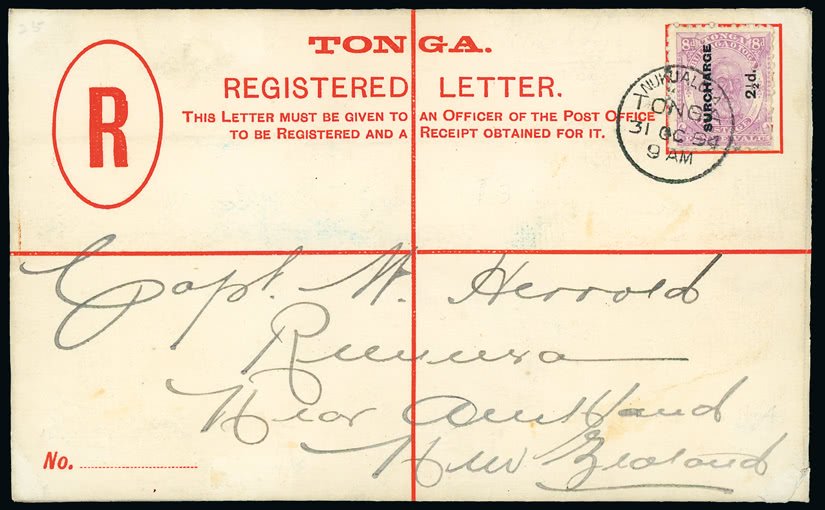 25
TONGA.
REGISTERED LETTER.
THIS LETTER MUST BE GIVEN TO AN OFFICER OF THE POST OFFICE
TO BE REGISTERED AND A RECEIPT OBTAINED FOR IT.
R
8d TONGA 8d
SURCHARGE
2½d.
NUKUALOFA
TONGA
31 OC 94
9 AM
Capt. W. Herrold
Remuera
Near Auckland
New Zealand
No.